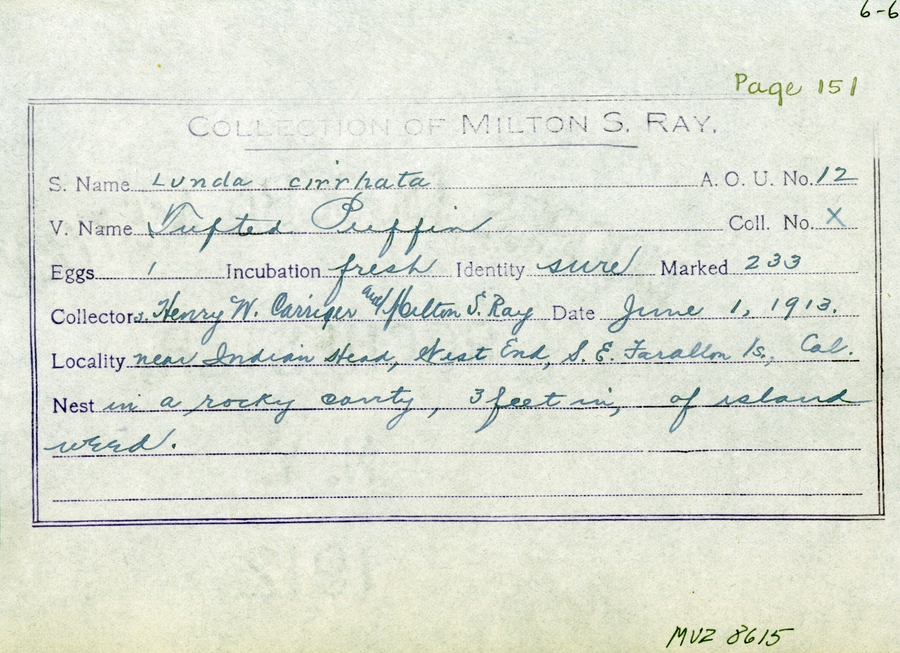 6-6
Page 151
COLLECTION OF MILTON S. RAY.
S. Name Lunda cirrhata A. O. U. No. 12
V. Name Tufted Puffin Coll. No. X
Eggs 1 Incubation fresh Identity sure Marked 233
Collectors. Henry W. Carriger and Milton S. Ray Date June 1, 1913.
Locality near Indian Head, West End, S. E. Farallon Is., Cal.
Nest in a rocky cavity, 3 feet in, of island
weed.
MVZ 8615